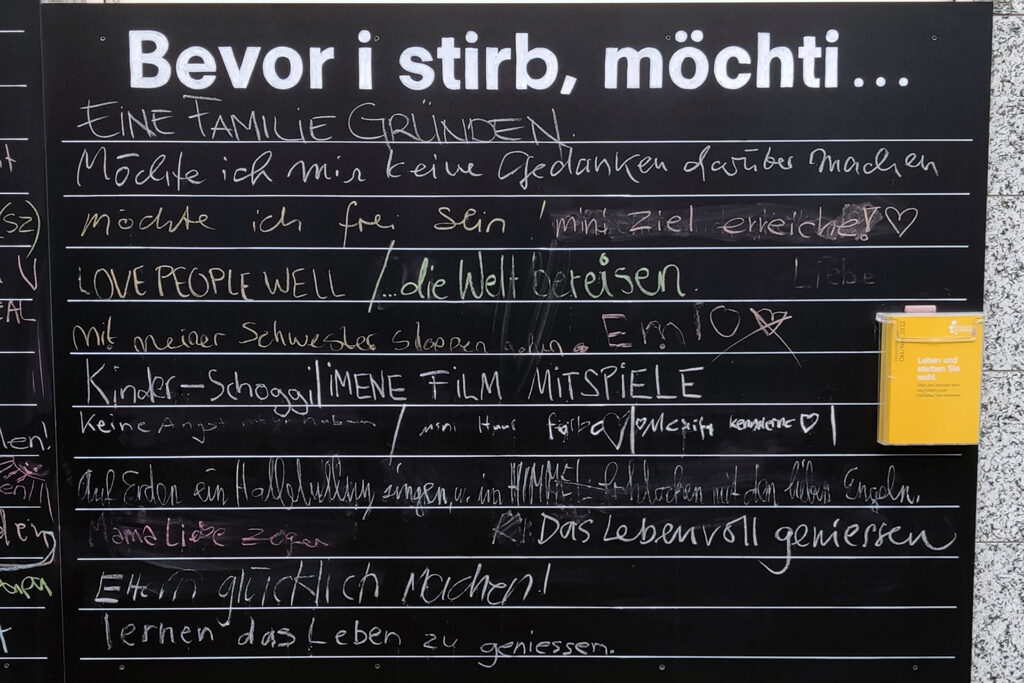 Bevor i stirb, möchti...
EINE FAMILIE GRÜNDEN.
Möchte ich mir keine Gedanken darüber machen
möchte ich frei sein! mini Ziel erreiche! ♡
LOVE PEOPLE WELL / ...die Welt bereisen. Liebe
mit meiner Schwester
Kinder-Schoggi | iMENE FiLM MiTSPiELE
Keine Angst mehr haben / mini Haar färbe ♡ | ♡ Mexiko ♡ |
Auf Erden ein singen, u. im HIMMEL frohlocken mit den lieben Engeln.
Mama Liebe
Das Leben voll geniessen
Eltern glücklich machen!
lernen das Leben zu geniessen.
Leben und
sterben Sie
wohl.
SZ)
V
EAL
len!